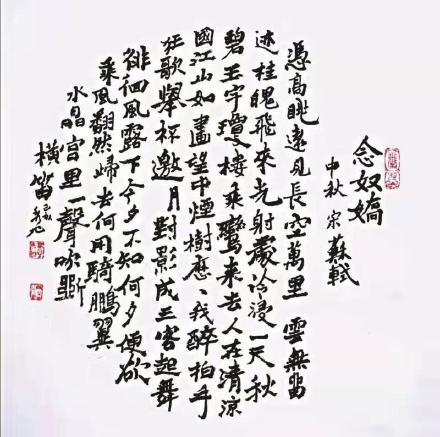 念奴嬌
中秋 宋 蘇軾
憑高眺遠見長空萬里 雲無留
迹桂魄飛來光射處冷浸一天秋
碧玉宇瓊樓乘鸞來去人在清涼
國江山如畫望中煙樹歷、我醉拍手
狂歌舉杯邀月對影成三客起舞
徘徊風露下今夕不知何夕便欲
乘風翻然歸去何用騎鵬翼
水晶宫里一聲吹斷
橫笛